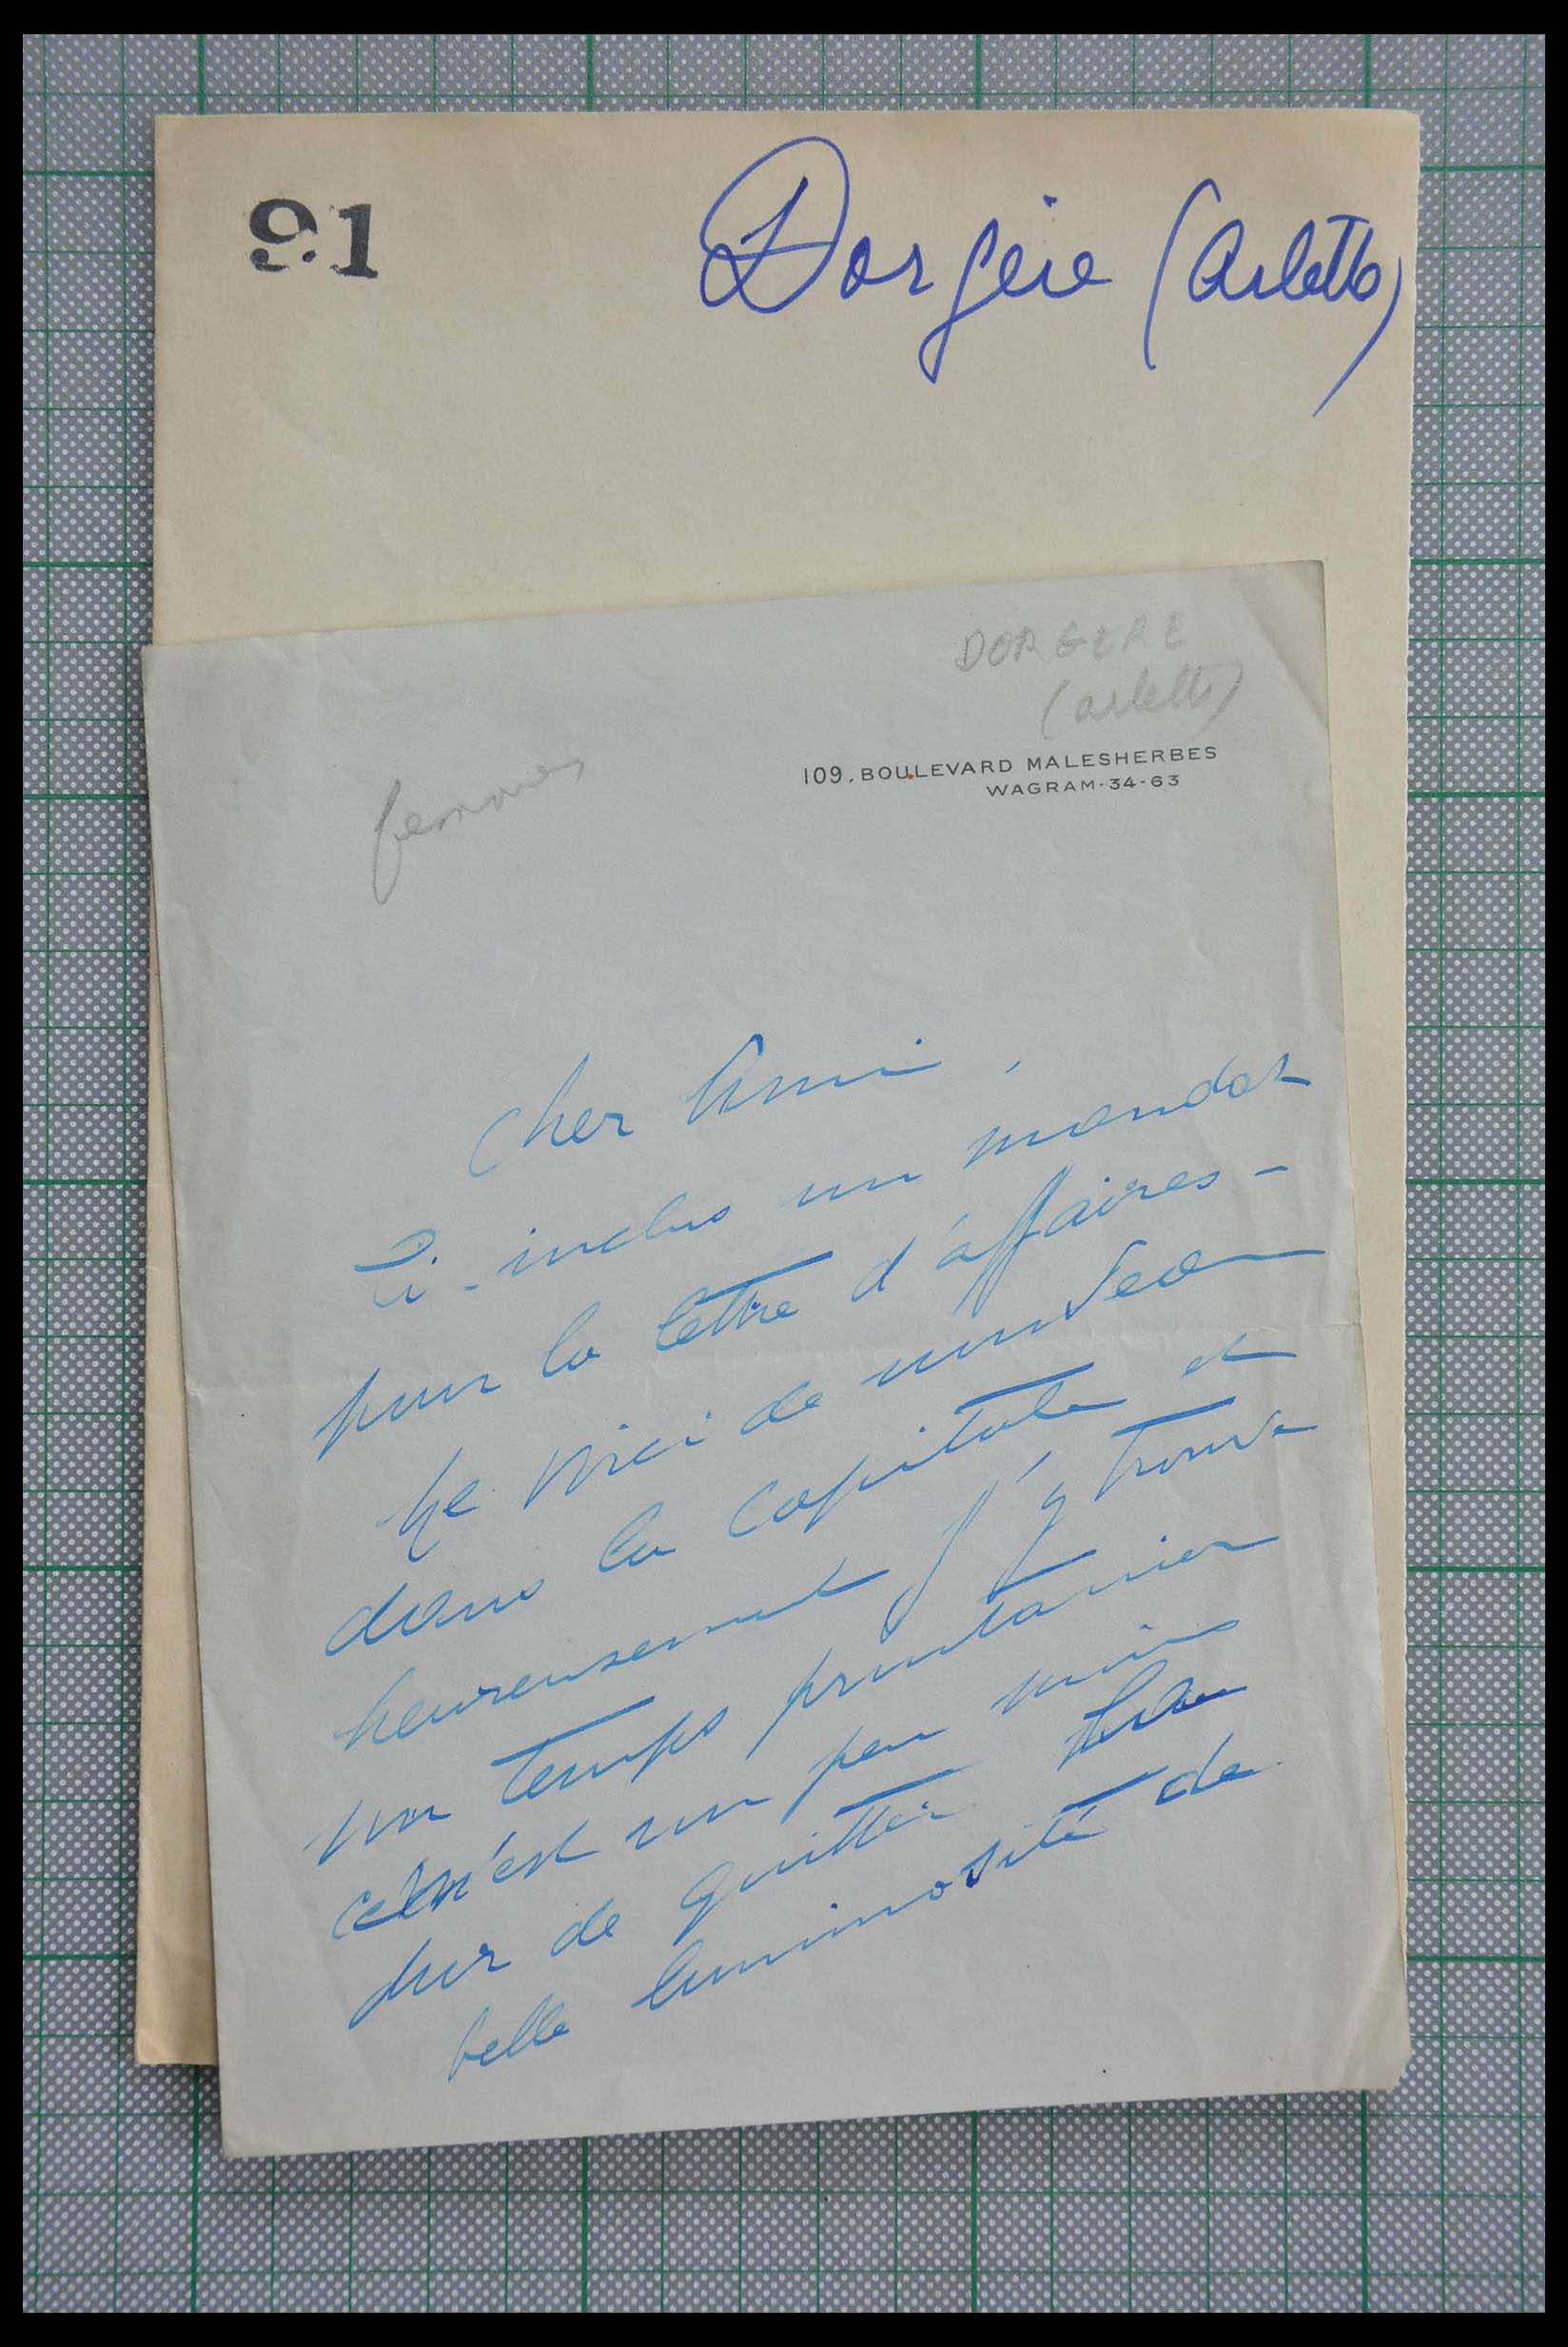 91
Dorgère (Arlette)
DORGERE
(arlette)
109, BOULEVARD MALESHERBES
WAGRAM-34-63
femmes
Cher Ami,
Ci-inclus un mandat
pour la lettre d'affaires -
Me voici de nouveau
dans la capitale et
heureusement j'y trouve
un temps printanier
c'est un peu moins
dur de quitter la
belle luminosité de